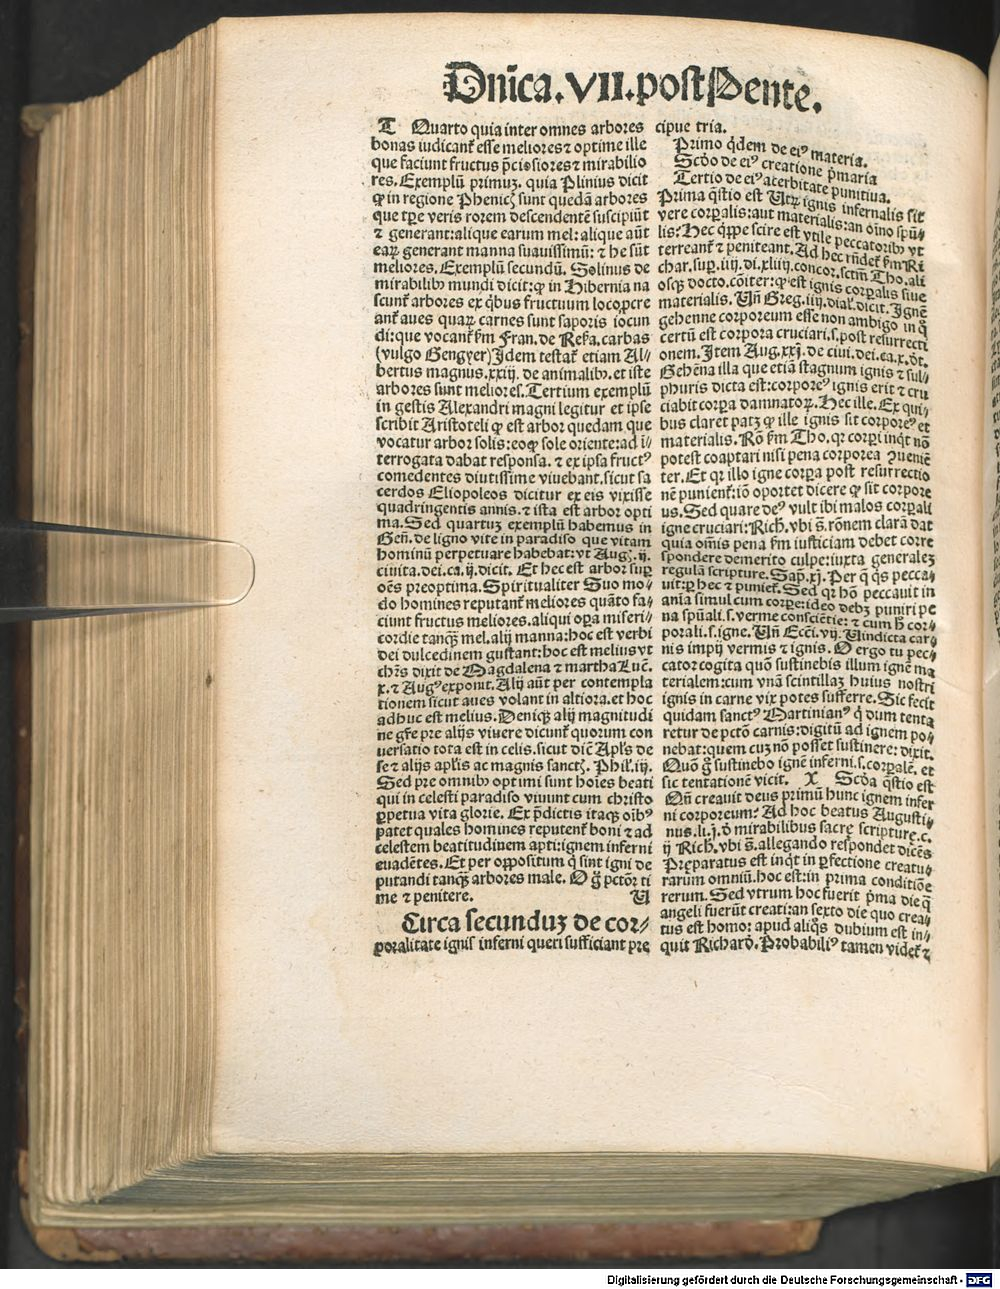 Dnīca.VII.post Pente.
T Quarto quia inter omnes arbores
bonas iudicant᷑ esse meliores ⁊ optime ille
que faciunt fructus p̄ciosiores ⁊ mirabilio
res. Exemplū primuꝫ. quia Plinius dicit
ꝙ in regione Phenicꝫ sunt quedā arbores
que tꝑe veris rorem descendentē suscipiūt
⁊ generant: alique earum mel: alique aūt
eaꝝ generant manna suauissimū: ⁊ he sūt
meliores. Exemplū secundū. Solinus de
mirabilibꝰ mundi dicit: ꝙ in Hibernia na
scunt᷑ arbores ex q̇bus fructuum loco ꝓcre
ant᷑ aues quaꝝ carnes sunt saporis iocun
di: que vocant᷑ ẜm Fran. de Reꝫa. carbas
(vulgo Gengyer) Idem testat᷑ etiam Al⸗
bertus magnus. xxiij. de animalibꝰ. et iste
arbores sunt meliores. Tertium exemplū
in gestis Alexandri magni legitur et ipse
scribit Aristoteli ꝙ est arbor quedam que
vocatur arbor solis: eo ꝙ sole oriente: ad ī⸗
terrogata dabat responsa. ⁊ ex ipsa fructꝰ
comedentes diutissime viuebant. sicut sa
cerdos Eliopoleos dicitur ex eis vixisse
quadringentis annis. ⁊ ista est arbor opti
ma. Sed quartuꝫ exemplū habemus in
Geñ. de ligno vite in paradiso que vitam
hominū perpetuare habebat: vt Augꝫ. ij.
ciuita. dei. ca. ij. dicit. Et hec est arbor suꝑ
oēs preoptima. Spiritualiter Suo mo⸗
do homines reputant᷑ meliores quāto fa⸗
ciunt fructus meliores. aliqui oꝑa miseri⸗
cordie tanqꝫ mel. alij manna: hoc est verbi
dei dulcedinem gustant: hoc est melius vt
chr̄s dixit de Magdalena ⁊ martha Luč.
x. ⁊ Augꝰ exponit. Alij aūt per contempla
tionem sicut aues volant in altiora. et hoc
adhuc est melius. Deniqꝫ alij magnitudi
ne gr̄e pre alijs viuere dicunt᷑ quorum con
uersatio tota est in celis. sicut dič Apl̄s de
se ⁊ alijs apl̄is ac magnis sanctꝫ. Phil̄. iij.
Sed pre omnibꝰ optimi sunt hoīes beati
qui in celesti paradiso viuunt cum christo
ꝑpetua vita glorie. Ex p̄dictis itaqꝫ oībꝰ
patet quales homines reputent᷑ boni ⁊ ad
celestem beatitudinem apti: ignem inferni
euadētes. Et per oppositum q̇ sint igni de
putandi tanqꝫ arbores male. O g̊ pctōr ti
me ⁊ penitere. U
Circa secunduꝫ de cor⸗
poralitate ignis inferni queri sufficiant pre
cipue tria.
Primo q̇dem de eiꝰ materia.
Scḋo de eiꝰ creatione p̄maria
Tertio de eiꝰ acerbitate punitiua.
Prima q̄stio est Utꝝ ignis infernalis sit
vere corꝑalis: aut materialis: an oīno spū⸗
lis: Hec q̇ppe scire est vtile peccatoribꝰ vt
terreant᷑ ⁊ peniteant. Ad hec rn̄det᷑ ẜm Ri
char. suꝑ. iiij. di. xliiij. concor. sctm̄ Tho. ali
osqꝫ docto. cōiter: ꝙ est ignis corꝑalis siue
materialis. Un̄ Greg. iiij. dial̄. dicit. Ignē
gehenne corporeum esse non ambigo in q̊
certū est corpora cruciari. s. post resurrecti
onem. Item Aug. xxj. de ciui. dei. ca. x. d̄t.
Gehēna illa que etiā stagnum ignis ⁊ sul⸗
phuris dicta est: corporeꝰ ignis erit ⁊ cru
ciabit corꝑa damnatoꝝ. Hec ille. Ex qui⸗
bus claret patꝫ ꝙ ille ignis sit corporeꝰ et
materialis. Rō ẜm Tho. qꝛ corꝑi inq̇t nō
potest coaptari nisi pena corporea ꝯueniē
ter. Et qꝛ illo igne corꝑa post resurrectio
nē punient᷑: iō oportet dicere ꝙ sit corpore
us. Sed quare deꝰ vult ibi malos corꝑali
igne cruciari: Rich. vbi s̄. rōnem clarā dat
quia om̄is pena ẜm iusticiam debet corre
spondere demerito culpe: iuxta generaleꝫ
regulā scripture. Sap̄. xj. Per q̄ q̇s pecca⸗
uit: ꝑ hec ⁊ puniet᷑. Sed qꝛ hō peccauit in
anīa simul cum corꝑe: ideo debꝫ puniri pe
na spūali. s. verme consciētie: ⁊ cum h̄ cor⸗
porali. s. igne. Un̄ Ecc̄i. vij. Uindicta car⸗
nis impij vermis ⁊ ignis. O ergo tu pec⸗
cator cogita quō sustinebis illum ignē ma
terialem: cum vnā scintillaꝫ huius nostri
ignis in carne vix potes sufferre. Sic fecit
quidam sanctꝰ Martinianꝰ q̇ dum tenta
retur de pctō carnis: digitū ad ignem po⸗
nebat: quem cuꝫ nō posset sustinere: dixit.
Quō g̊ sustinebo ignē inferni. s. corꝑalē. et
sic tentationē vicit. X Scḋa q̄stio est
Qn̄ creauit deus primū hunc ignem infer
ni corporeum: Ad hoc beatus Augusti⸗
nus. li. j. d̄ mirabilibus sacre scripture. c.
ij Rich. vbi s̄. allegando respondet dicēs
Preparatus est inq̇t in ꝑfectione creatu⸗
rarum omniū. hoc est: in prima conditiōe
rerum. Sed vtrum hoc fuerit p̄ma die q̄
angeli fuerūt creati: an sexto die quo crea⸗
tus est homo: apud aliq̊s dubium est in⸗
quit Richarḋ. Probabiliꝰ tamen videt᷑ ⁊
Digitalisierung gefördert durch die Deutsche Forschungsgemeinschaft - DFG